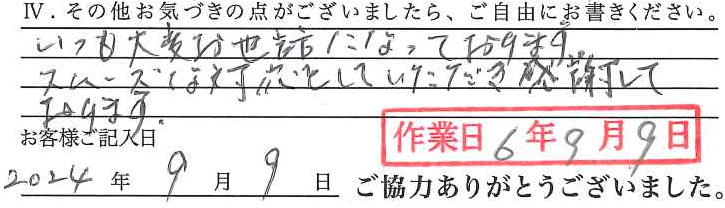 Ⅳ．その他お気づきの点がございましたら、ご自由にお書きください。
いつも大変お世話になっております。
スムーズな対応をしていただき感謝して
おります。
お客様ご記入日
作業日 6年9月9日
2024 年 9 月 9 日 ご協力ありがとうございました。